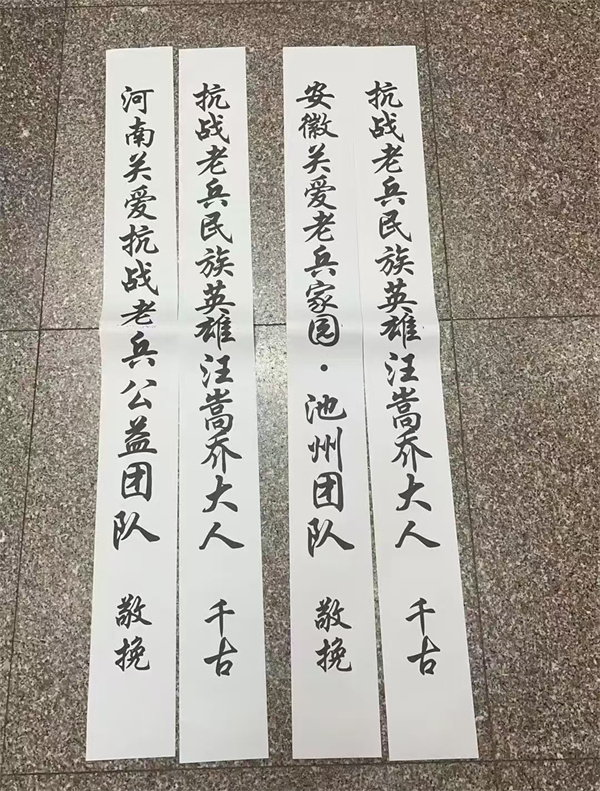 抗战老兵民族英雄汪嵩乔大人 千古
安徽关爱老兵家园·池州团队 敬挽
抗战老兵民族英雄汪嵩乔大人 千古
河南关爱抗战老兵公益团队 敬挽